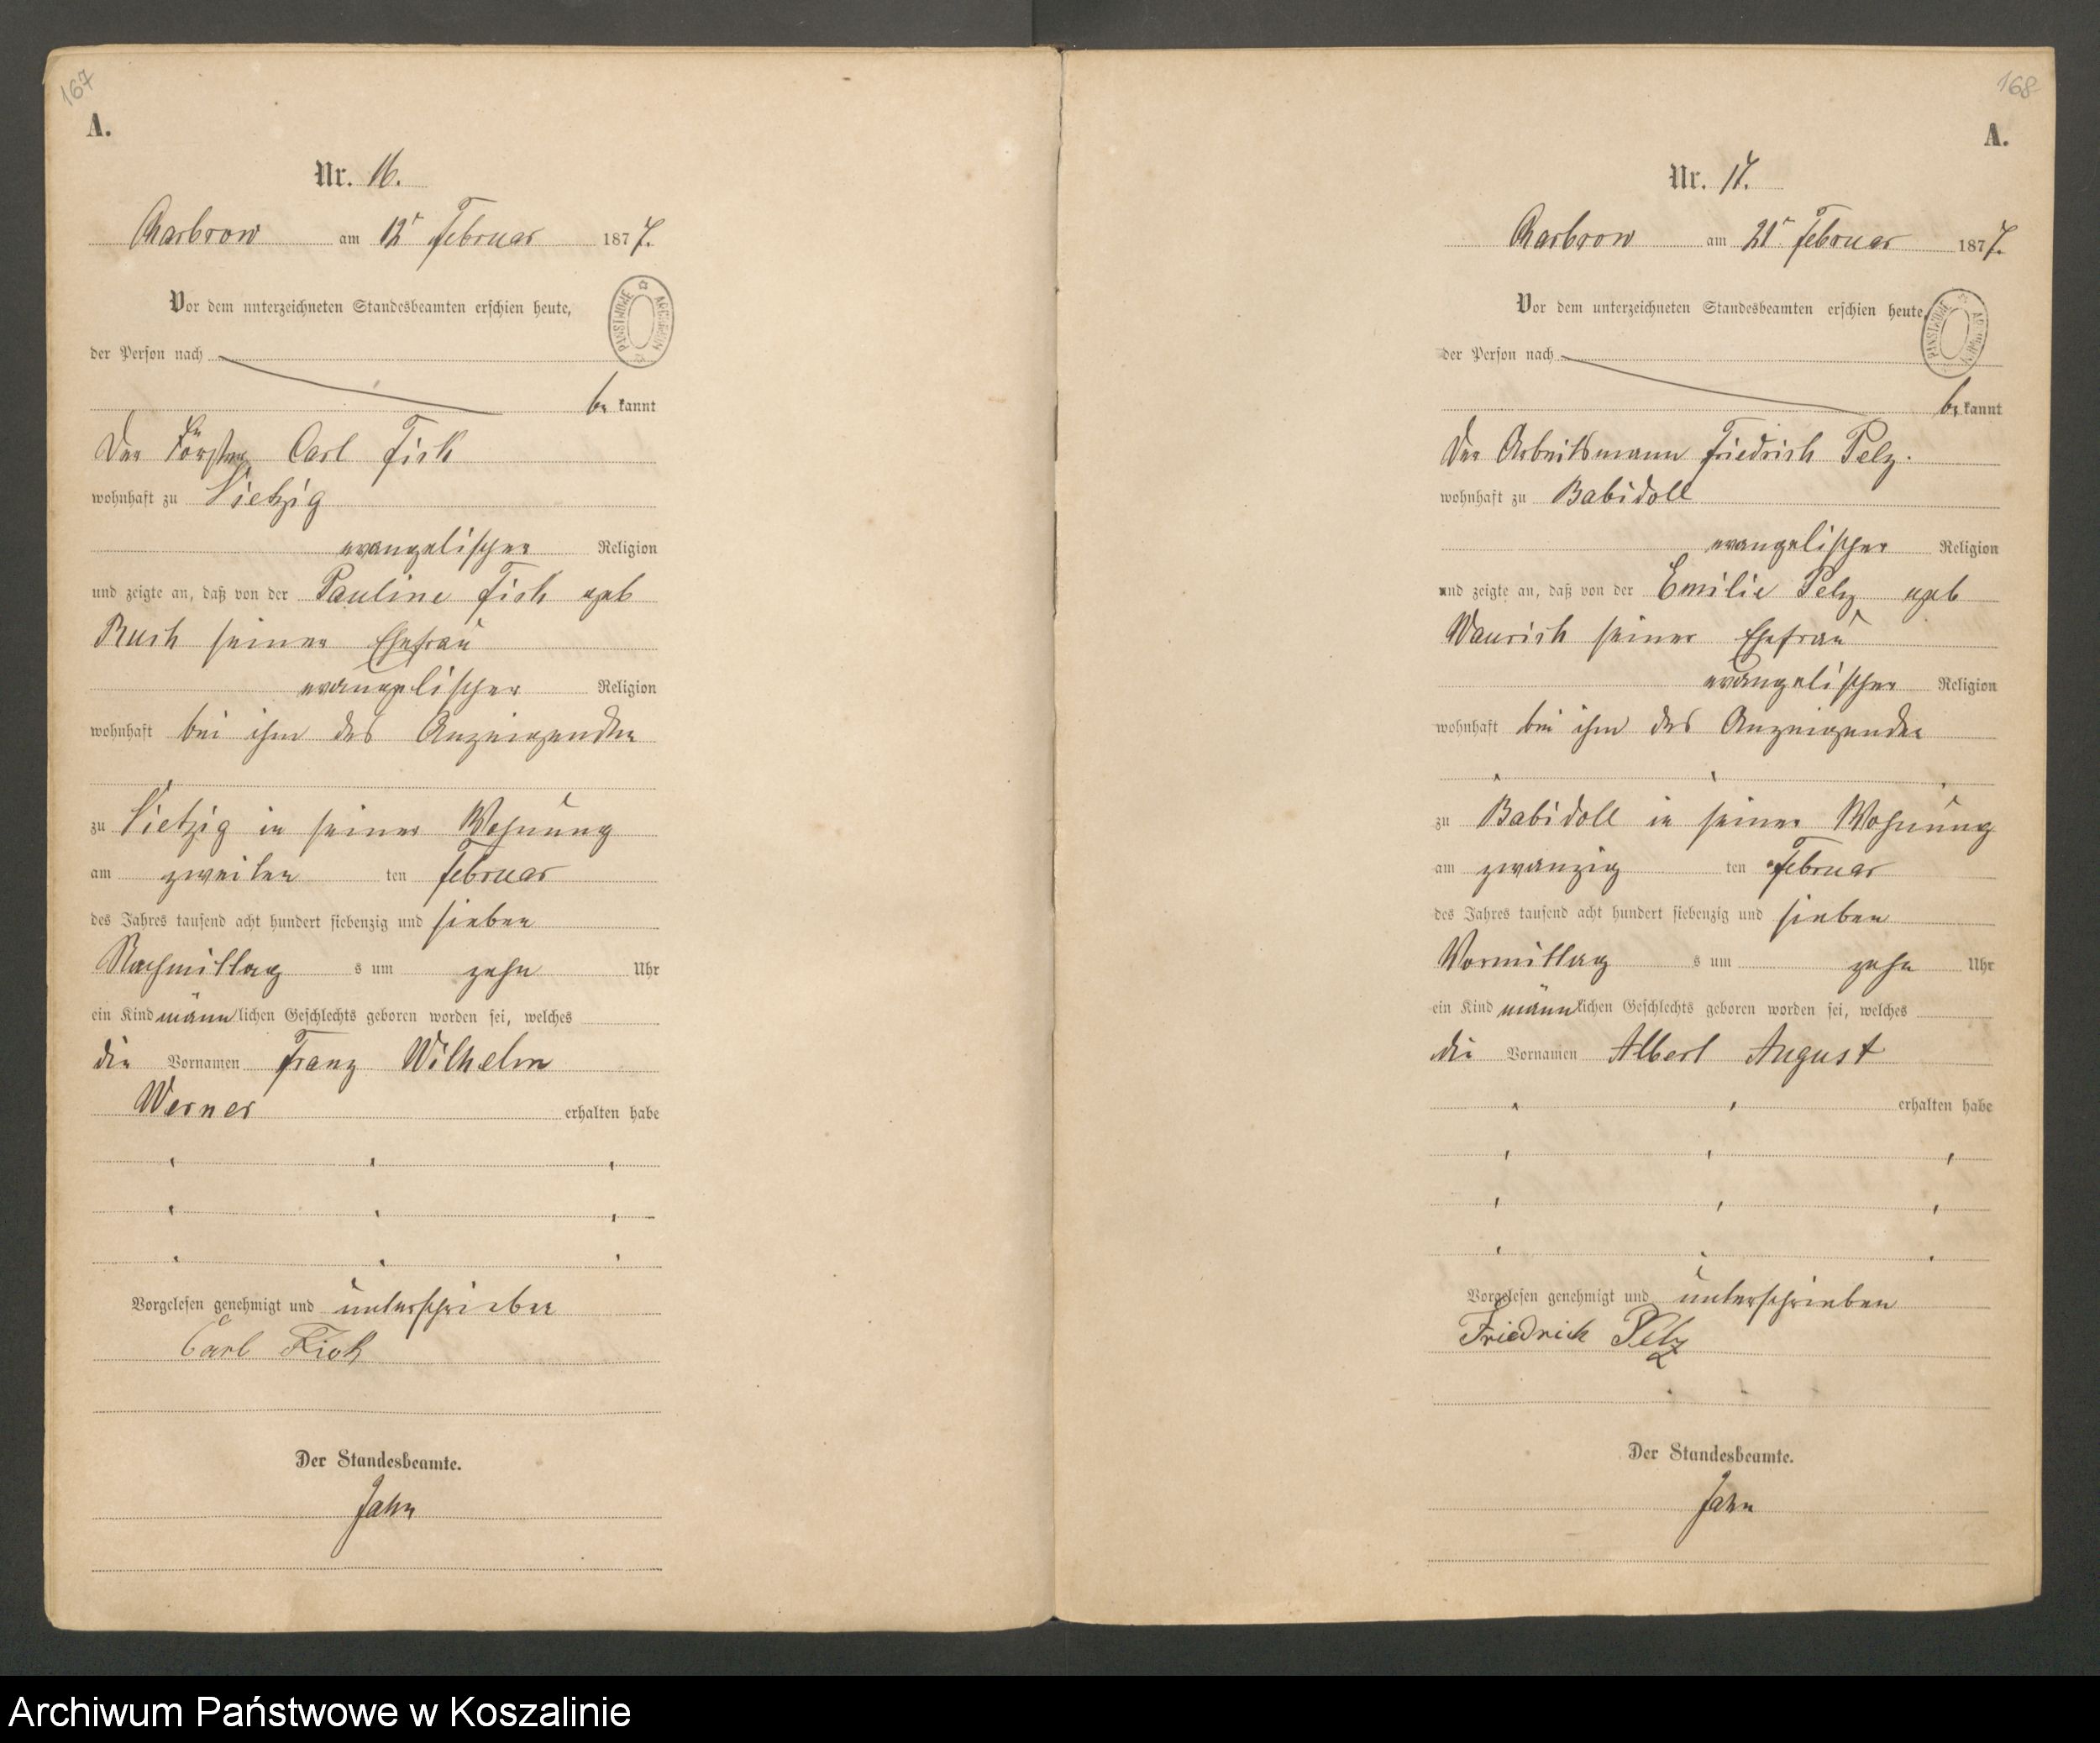 167
A.
Nr. 16.
Charbrow am 12t Februar 1877.
Vor dem unterzeichneten Standesbeamten erschien heute,
der Person nach
be kannt
Der Förster Carl Fick
wohnhaft zu Vietzig
evangelischer Religion
und zeigte an, daß von der Pauline Fick geb
seiner Ehefrau
evangelischer Religion
wohnhaft bei ihm des Anzeigenden
zu Vietzig in seiner Wohnung
am zweiten ten Februar
des Jahres tausend acht hundert siebenzig und sieben
Nachmittag s um zehn Uhr
ein Kind männlichen Geschlechts geboren worden sei, welches
die Vornamen Franz Wilhelm
Werner erhalten habe
Vorgelesen genehmigt und unterschrieben
Carl Fick
Der Standesbeamte.
Jahn
PAŃSTWOWE ARCHIWUM
168
A.
Nr. 17.
Charbrow am 21t Februar 1877.
Vor dem unterzeichneten Standesbeamten erschien heute,
der Person nach
be kannt
Der Arbeitsmann Friedrich Pelz.
wohnhaft zu Babidoll
evangelischer Religion
und zeigte an, daß von der Emilie Pelz geb
seiner Ehefrau
evangelischer Religion
wohnhaft bei ihm des Anzeigenden
zu Babidoll in seiner Wohnung
am zwanzig ten Februar
des Jahres tausend acht hundert siebenzig und sieben
Vormittag s um zehn Uhr
ein Kind männlichen Geschlechts geboren worden sei, welches
die Vornamen Albert August
erhalten habe
Vorgelesen genehmigt und unterschrieben
Friedrich Pelz
Der Standesbeamte.
Jahn
PAŃSTWOWE ARCHIWUM
Archiwum Państwowe w Koszalinie